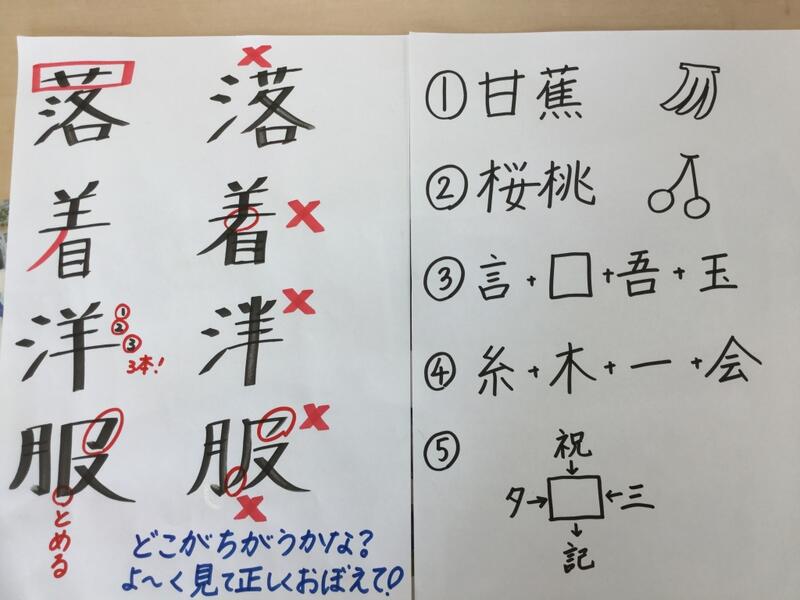 落 × 落
着 着 ×
洋 ① ② ③ 3本! 洋 ×
服 服 × ×
とめる
どこがちがうかな?
よ〜く見て正しくおぼえて!
① 甘蕉
② 桜桃
③ 言+□+吾+玉
④ 糸+木+一+会
⑤ 祝
↓
夕→□←三
↓
記